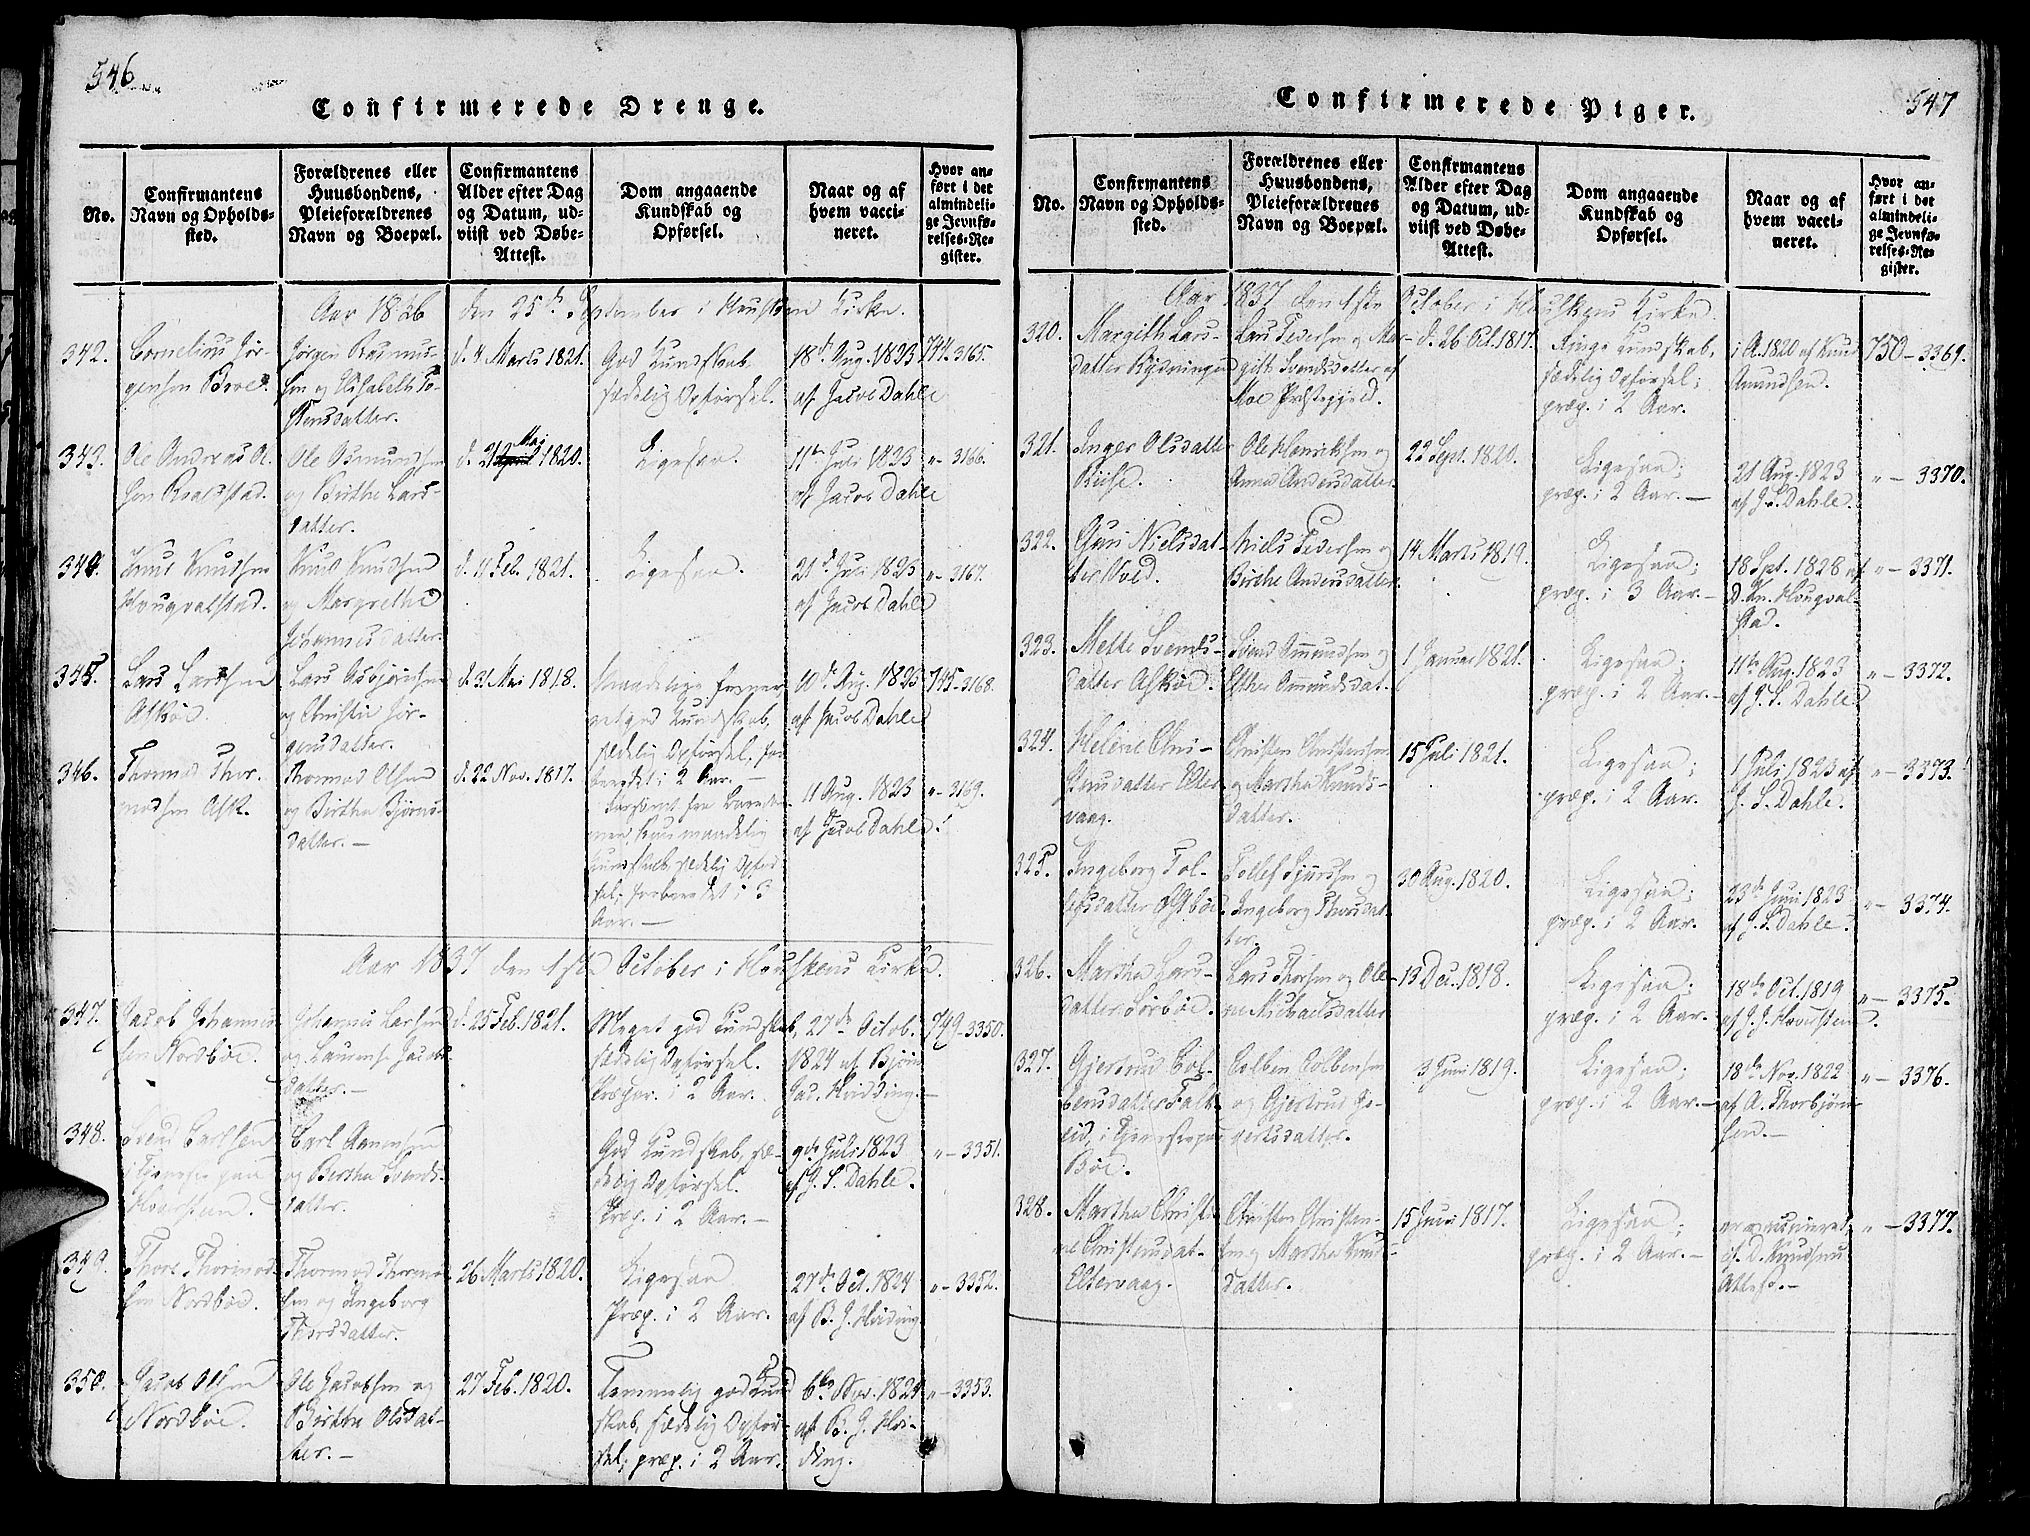 546
Confirmerede Drenge.
No.
Confirmantens
Navn og Opholds-
sted.
Forældrenes eller
Huusbondens,
Pleieforældrenes
Navn og Boepæl.
Confirmantens
Alder efter Dag
og Datum, ud-
viist ved Døbe-
Attest.
Dom angaaende
Kundskab og
Opførsel.
Naar og af
hvem vacci-
neret.
Hvor an-
ført i det
almindeli-
ge Jevnfø-
relses-Re-
gister.
Aar 1836 den 25de September i Kirke.
342.
Cornelius Jør-
gensen
Jørgen Rasmus-
sen og To-
stensdatter.
d. 4 Marts 1821.
God Kundskab
sædelig Opførsel.
18de Aug. 1823
af Jacob Dahle
744. 3165.
343.
Ole Andreas Ol-
sen
Ole Osmundsen
og Birthe Lars-
datter.
d. 21 Mai 1820.
Ligesaa.
11te Juli 1823
af Jacob Dahle
" - 3166.
344.
Knud Knudsen
Hougvalstad.
Knud Knudsen
og Margrethe
Johannesdatter.
d. 11 Feb. 1821.
Ligesaa.
21de Juli 1823
af Jacob Dahle
" - 3167.
345.
Lars Larsen
Askøe.
Lars Asbjørnsen
og Christie Jør-
gensdatter.
d. 31 Mai 1818.
Kundskab,
sædelig Opførsel, for-
beredet i 2 Aar. -
10de Aug. 1823
af Jacob Dahle
745-3168.
346.
Thormod Thor-
modsen Ask.
Thormod Olsen
og Birtha Bjørns-
datter. -
d. 22 Nov. 1817.
maadelig
Kundskab, sædelig Opfør-
sel, forberedet i 3
Aar. -
11 Aug. 1823
af Jacob Dahle.
" - 3169.
Aar 1837 den 1ste October i Hauskens Kirke.
347.
Jacob Johannes-
sen Nordbøe.
Johannes Larsen
og Laurense Jacobs-
datter. -
d. 25 Feb. 1821.
Meget god Kundskab,
sædelig Opførsel.
Præpar. i 2 Aar.
27de Octob.
1824 af Bjørn
Jac. Hodding. -
749-3350.
348.
Svend Carlsen
i Tieneste paa
Hoversteen.
Carl Aanensen
og Bertha Svends-
datter.
God Kundskab, sæ-
delig Opførsel.
Præp. i 2 Aar. -
9de Juli 1823
af J. S. Dahle.
" - 3351.
349.
Thore Thormod-
sen Nordbøe.
Thormod Thormod-
sen og Ingeborg
Thorsdatter.
26 Marts 1820.
Ligesaa
Præp. i 2 Aar.
27de Oct. 1824
af B. J.
" - 3352.
350.
Jacob Olsen
Nordbøe.
Ole Jacobsen og
Birtha Olsdat-
ter. -
27 Feb. 1820.
Temmelig god Kund
skab, sædelig Opfør-
sel; præp. i 2 Aar.
6te Nov. 1824
af B. J.
" - 3353.
547
Confirmerede Piger.
No.
Confirmantens
Navn og Opholds-
sted.
Forældrenes eller
Huusbondens,
Pleieforældrenes
Navn og Boepæl.
Confirmantens
Alder efter Dag
og Datum, ud-
viist ved Døbe-
Attest.
Dom angaaende
Kundskab og
Opførsel.
Naar og af
hvem vacci-
neret.
Hvor an-
ført i det
almindeli-
ge Jevnfø-
relses-Re-
gister.
Aar 1837 den 1ste October i Hauskens Kirke.
320.
Margith Lars-
datter Rydningen
Lars Pedersen og Mar-
gith Svendsdatter af
Moe Præstegjeld.
d. 26 Oct. 1817.
Ringe Kundskab,
sædelig Opførsel;
præp. i 2 Aar.
i A. 1820 af Knud
Amundsen.
750-3369.
321.
Inger Olsdatter
Ole Henriksen og
Anna Andersdatter.
22 Sept. 1820.
Ligesaa;
præp. i 2 Aar. -
21 Aug. 1823
af J. S. Dahle.
" - 3370.
322.
Guri Nielsdat-
ter Vold.
Niels Pedersen og
Birthe Andersdatter.
14 Marts 1819.
Ligesaa;
præp. i 3 Aar. -
18 Sept. 1828 af
D. Kn. Hougval-
stad.
" - 3371.
323.
Mette Svends-
datter Askøe.
Svend Omundsen og
Esther Omundsdat-
1 Januar 1821.
Ligesaa;
præp. i 2 Aar. -
11te Aug. 1823
af J. S. Dahle
" - 3372.
324.
Helene Chri-
stensdatter Elter-
vaag.
Christen Christensen
og Martha Knuds-
datter.
15 Juli 1821.
Ligesaa;
præp. i 2 Aar.
1 Juli 1823 af
J. S. Dahle.
" - 3373.
325.
Ingeborg Tol-
lefsdatter Østbøe.
Tollef Sjursen og
Ingeborg Thorsdat-
ter.
30 Aug. 1820.
Ligesaa;
præp. i 2 Aar.
23de Juni 1823
af J. S. Dahle.
" - 3374.
326.
Martha Lars-
datter Sørbøe.
Lars Thorsen og Ole-
ne Michaelsdatter
13 Dec. 1818.
Ligesaa;
præp. i 2 Aar.
18de Oct. 1819
af J. J. Hoversteen.
" - 3375.
327.
Gjertrud Col-
bensdatter
i Tjeneste paa
Bøe.
Colben Colbensen
og Gjertrud
datter.
3 Juni 1819.
Ligesaa;
præp. i 2 Aar. -
18de Nov. 1822
af A. Thorbjørn-
sen. -
" - 3376.
328.
Martha Christi-
ne Christensdat-
Eltervaag.
Christen Christen-
sen og Martha Knuds-
datter.
15 Juni 1817.
Ligesaa;
præp. i 2 Aar. -
af D. Knudsen
" - 3377.